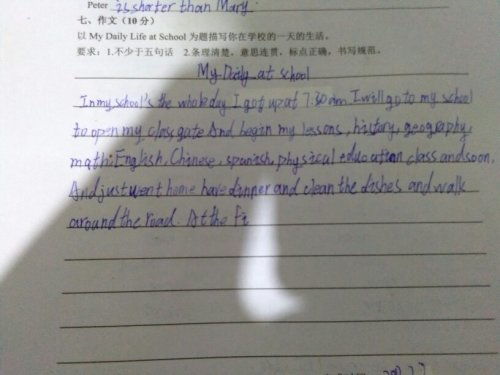 Peter is shorter than Mary.
七、作文(10 分)
以 My Daily Life at School 为题描写你在学校的一天的生活。
要求：1.不少于五句话 2.条理清楚，意思连贯，标点正确，书写规范。
My Daily at school
In my school's the whole day I got up at 7:30 am. I will go to my school
to open my class gate And begin my lessons, history, geography,
math, English, Chinese, spanish, physical education class and soon,
And just went home have dinner and clean the dishes and walk
around the road. At the Fi